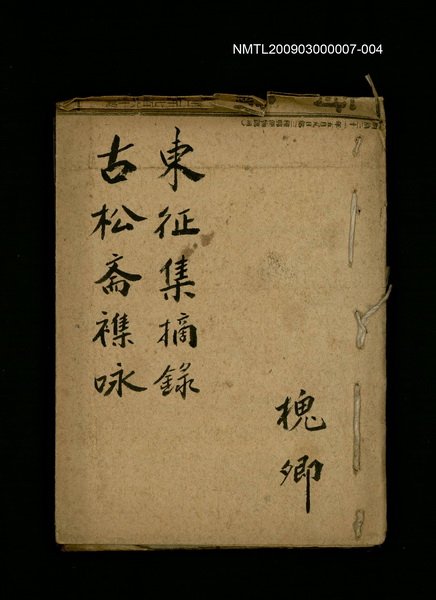 NMTL200903000007-004
東征集摘錄
古松斋襍咏
槐卿